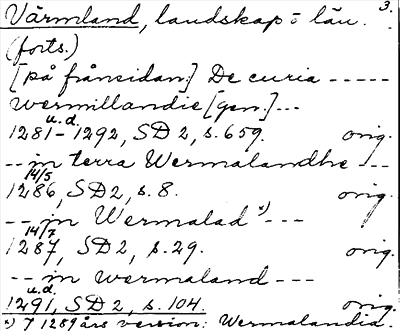 Värmland, landskap o. län. 3.
(forts.)
[på frånsidan:] De curia -----
wermillandie [gen.]---
u.d.
1281-1292, SD 2, s. 659. orig.
-- in terra Wermalandhe ---
14/5
1286, SD 2, s. 8. orig.
--- in Wermalad x) ---
14/7
1287, SD 2, s. 29. orig.
--- in wermaland ---
u.d.
1291, SD 2, s. 104. orig.
x) I 1289 års version: Wermalandia.